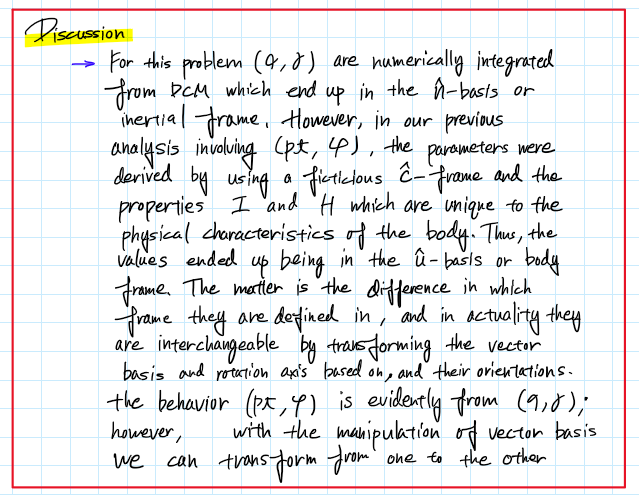 Discussion
→ For this problem (q, γ) are numerically integrated
from DCM which end up in the n̂-basis or
inertial frame. However, in our previous
analysis involving (pt, φ), the parameters were
derived by using a ficticious ĉ-frame and the
properties I and H which are unique to the
physical characteristics of the body. Thus, the
values ended up being in the û-basis or body
frame. The matter is the difference in which
frame they are defined in, and in actuality they
are interchangeable by transforming the vector
basis and rotation axis based on, and their orientations.
the behavior (pt, φ) is evidently from (q, γ);
however, with the manipulation of vector basis
we can transform from one to the other